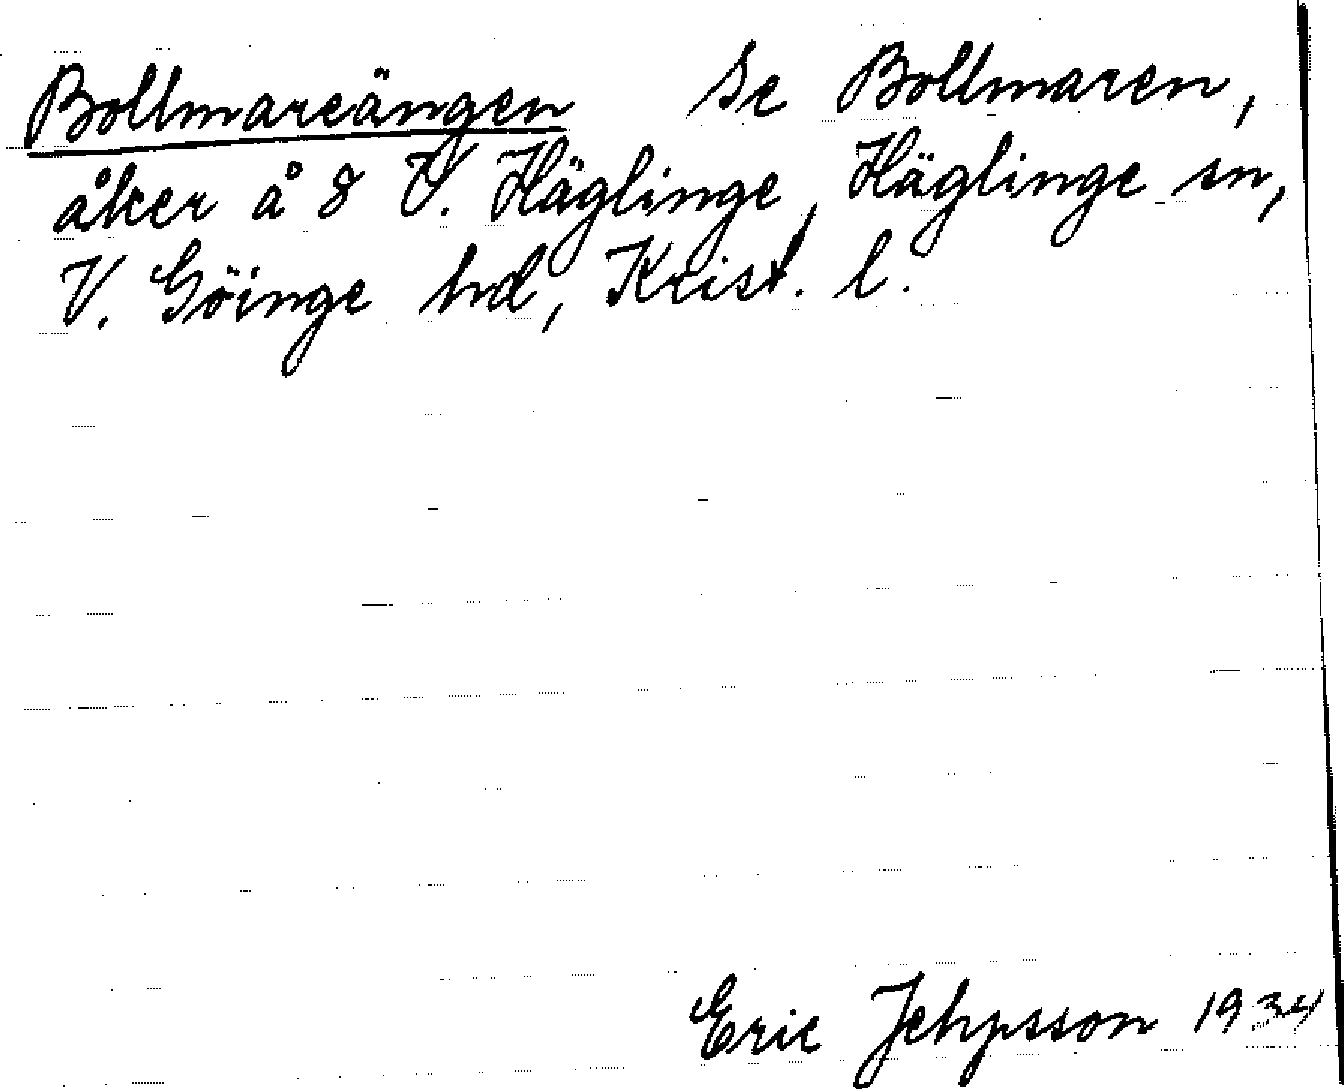 Bollmareängen se Bollmaren,
åker å 8 V. Häglinge, Häglinge sn,
V. Göinge hd, Krist. l.
Eric Jehpsson 1934